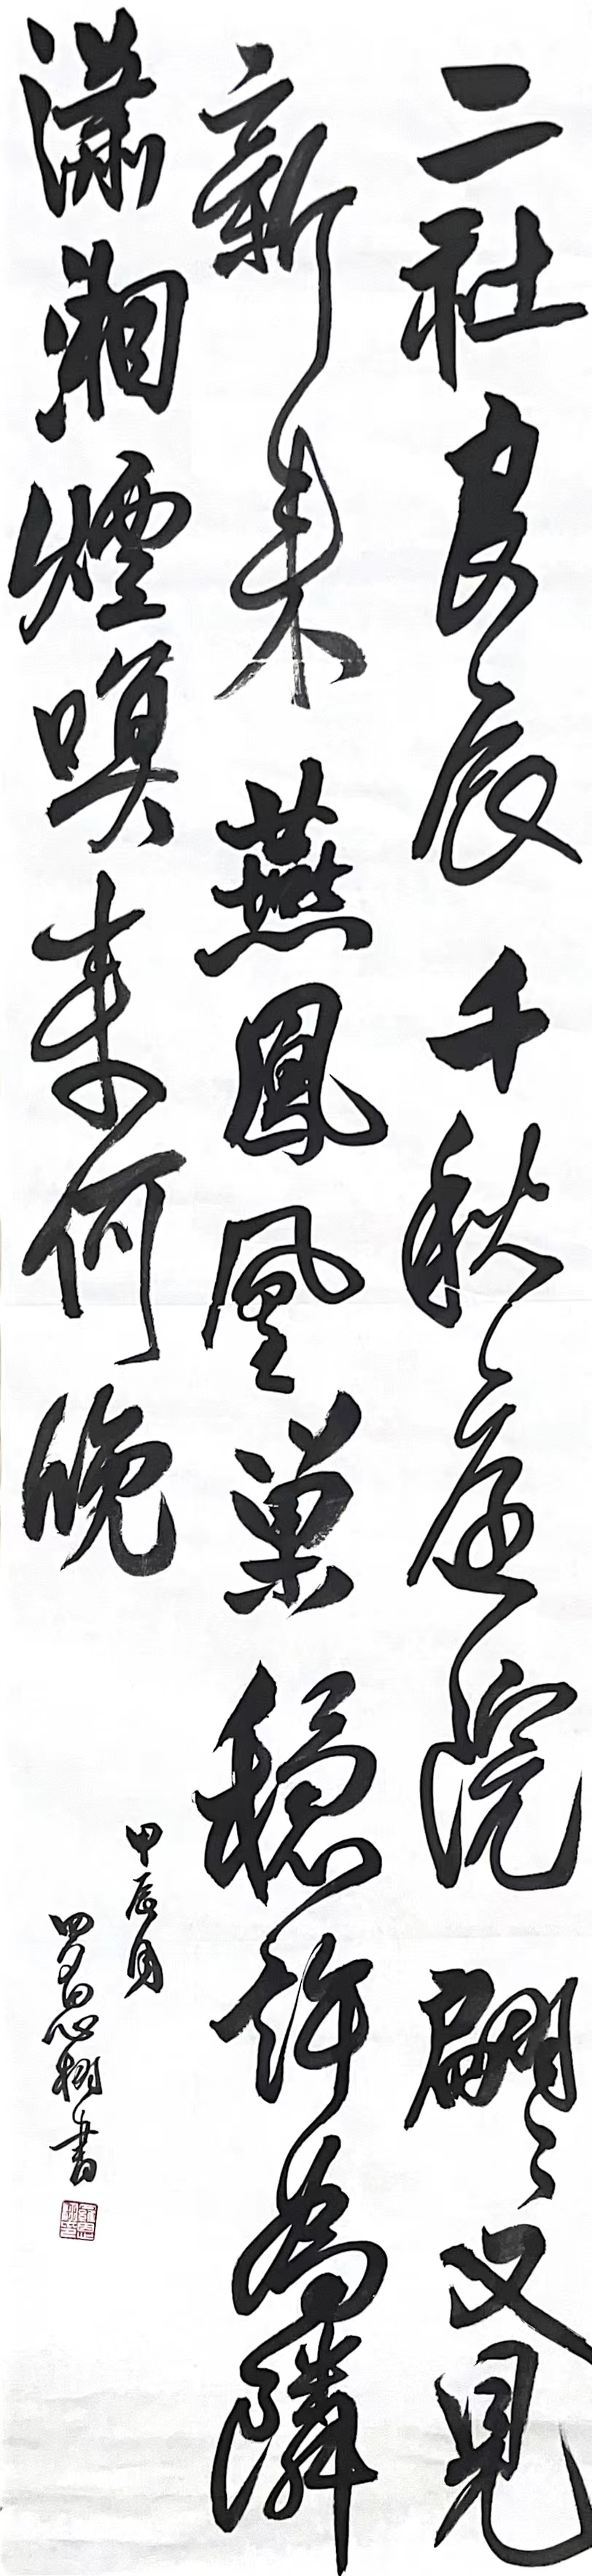 二社良辰千秋庭院翩々又見
新来燕鳳凰巢穩許為隣
瀟湘煙暝来何晚
甲辰月
羅思栩書